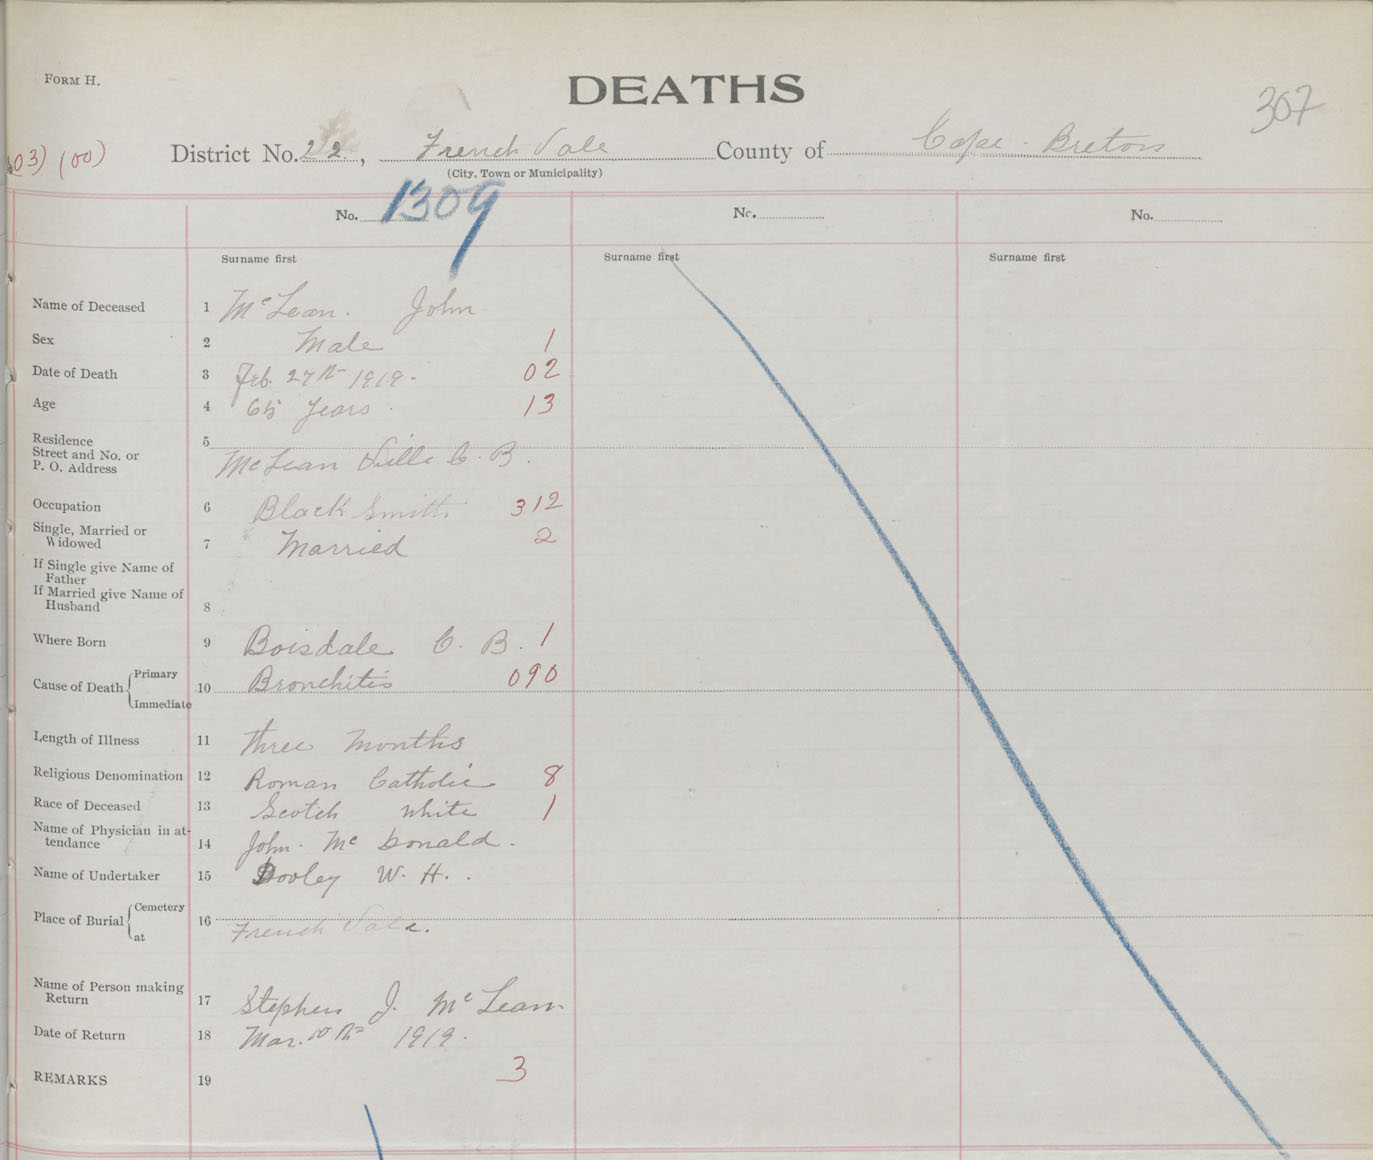 FORM H.
DEATHS
307
03) (00)
District No. 22, French Vale County of Cape Breton
(City, Town or Municipality)
No. 1309 No. No.
Surname first Surname first Surname first
Name of Deceased 1 McLean. John
Sex 2 Male 1
Date of Death 3 Feb. 27th 1919. 02
Age 4 65 years. 13
Residence 5
Street and No. or
P. O. Address McLean Ville C. B.
Occupation 6 Black Smith 312
Single, Married or
Widowed 7 Married 2
If Single give Name of
Father
If Married give Name of
Husband 8
Where Born 9 Boisdale C. B. 1
Cause of Death Primary 10 Bronchitis 090
Immediate
Length of Illness 11 three months
Religious Denomination 12 Roman Catholic 8
Race of Deceased 13 Scotch white 1
Name of Physician in at-
tendance 14 John. Mc Donald.
Name of Undertaker 15 Dooley W. H..
Place of Burial Cemetery 16
at French Vale.
Name of Person making
Return 17 Stephen J. McLean
Date of Return 18 Mar. 10th 1919.
REMARKS 19 3